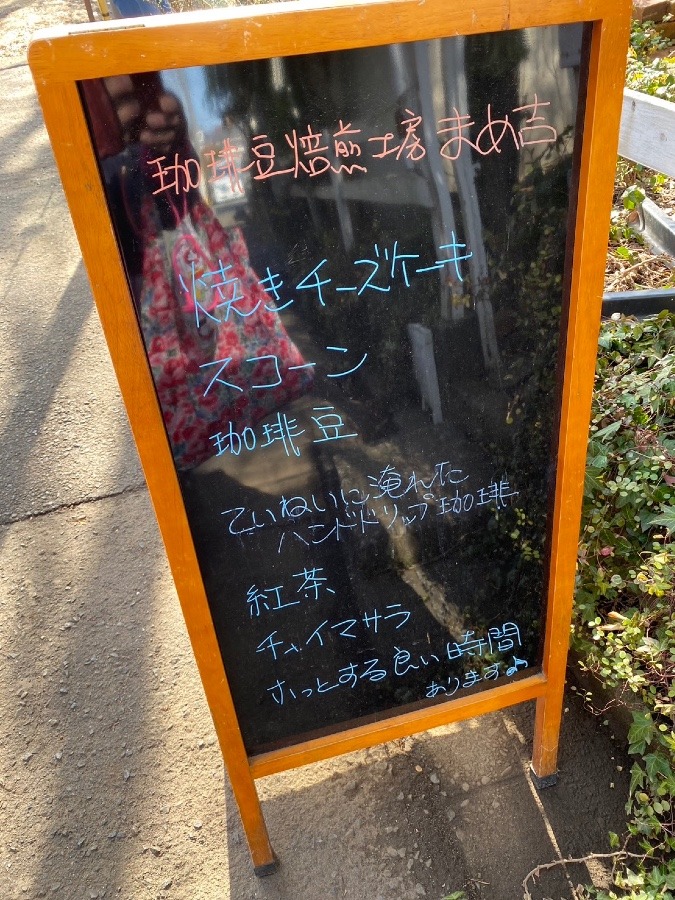 珈琲豆焙煎工房まめ吉
焼きチーズケーキ
スコーン
珈琲豆
ていねいに淹れた
ハンドドリップ珈琲
紅茶
チャイマサラ
ホっとする良い時間
あります♪